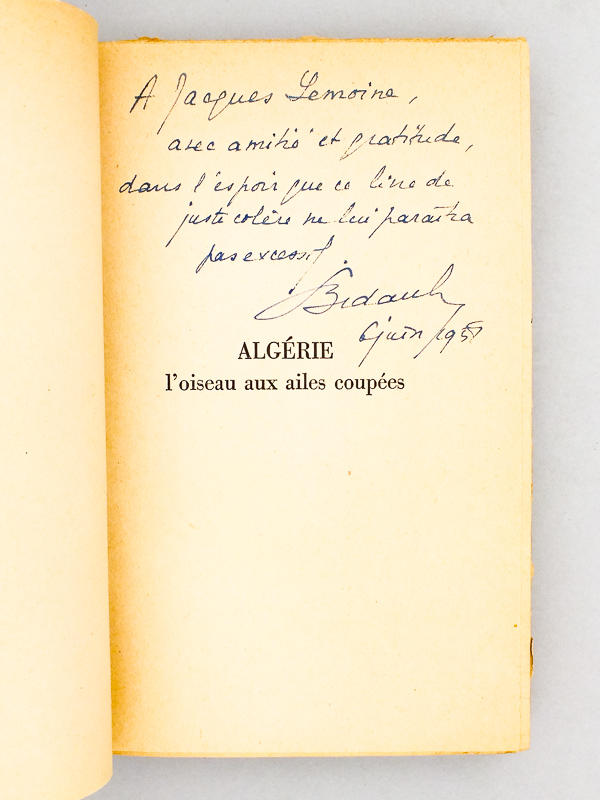 A Jacques Lemoine,
avec amitié et gratitude,
dans l'espoir que ce livre de
juste colère ne lui paraîtra
pas excessif.
Bidault
6 juin 1958
ALGÉRIE
l'oiseau aux ailes coupées